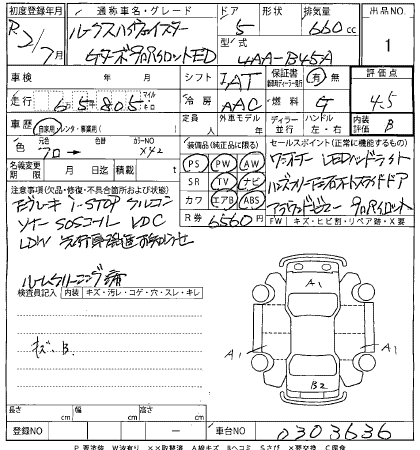 初度登録年月 通称車名・グレード ドア 形状 排気量 出品NO.
R2/7月 ルークスハイウェイスター 5 660cc 1
Gターボプロパイロット ED 型式 4AA-B45A
車検 年 月 シフト IAT 保証書 有 無 評価点
走行 65805 マイル キロ 冷房 AAC 燃料 G 4.5
車歴 自家用 レンタ・事業用( ) 定員 人 外車モデル 年 ディーラー 並行 ハンドル 左・右 内装評価 B
色 元色 クロ → 色替 カラーNO. X42
装備品(純正品に限る) セールスポイント(正常に機能する物)
PS PW AW ワンオーナー LEDヘッドライト
名義変更期限 月 日迄 積載 t SR TV ナビ ハンズフリー両側オートスライドドア
注意事項(欠品・修復・不具合箇所及び状態) カワ エアB ABS アラウンドビュー プロパイロット
R券 6560円 FW キズ・ヒビ割・リペア跡・X要
エマブレーキ i-STOP アルコン
ソナー SOSコール VDC
LDW 先行車発進お知らせ
ルームクリーニング済
検査員記入 内装 キズ・汚レ・コゲ・穴・スレ・キレ
キズ.B.
A1
A1 A1
B2
長さ cm 幅 cm 高さ cm
登録NO ー 車台NO 0303636
P要塗装 W波有り ××取替済 A線キズ Bヘコミ Sさび ×要交換 C腐食